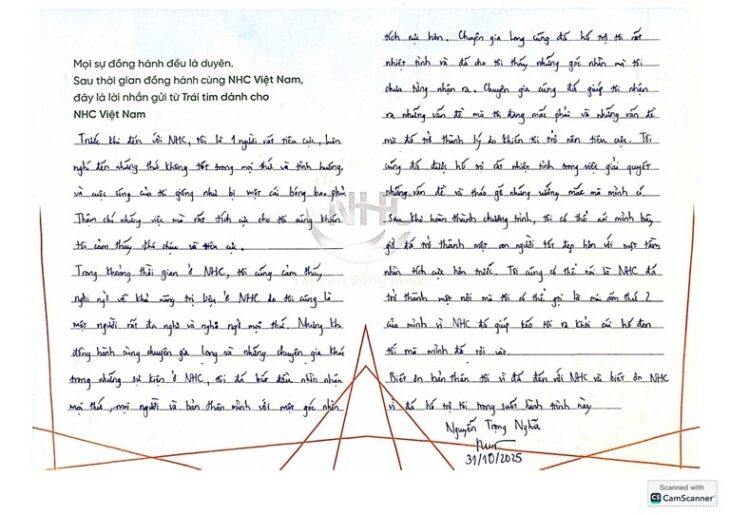 Mọi sự đồng hành đều là duyên.
Sau thời gian đồng hành cùng NHC Việt Nam,
đây là lời nhắn gửi từ Trái tim dành cho
NHC Việt Nam
Trước khi đến với NHC, tôi là 1 người rất tiêu cực, luôn
nghĩ đến những thứ không tốt trong mọi thứ và tình huống,
và cuộc sống của tôi giống như bị một cái bóng bao phủ
Thậm chí những việc mà rất tích cực cho tôi cũng khiến
tôi cảm thấy khó chịu và tiêu cực.
Trong khoảng thời gian ở NHC, tôi cũng cảm thấy
nghi ngờ về khả năng trị liệu ở NHC do tôi cũng là
một người rất đa nghi và nghi ngờ mọi thứ. Nhưng khi
đồng hành cùng chuyên gia Long và những chuyên gia khác
trong những sự kiện ở NHC, tôi đã bắt đầu nhìn nhận
mọi thứ, mọi người và bản thân mình với một góc nhìn
tích cực hơn. Chuyên gia Long cũng đã hỗ trợ tôi rất
nhiệt tình và đã cho tôi thấy những góc nhìn mà tôi
chưa từng nhận ra. Chuyên gia cũng đã giúp tôi nhận
ra những vấn đề mà tôi đang mắc phải và những vấn đề
mà đã trở thành lý do khiến tôi trở nên tiêu cực. Tôi
cũng đã được hỗ trợ rất nhiệt tình trong việc giải quyết
những vấn đề và tháo gỡ những vướng mắc mà mình có.
Sau khi hoàn thành chương trình, tôi có thể nói mình bây
giờ đã trở thành một con người tốt đẹp hơn với một tầm
nhìn tích cực hơn trước. Tôi cũng có thể nói là NHC đã
trở thành một nơi mà tôi có thể gọi là mái ấm thứ 2
của mình vì NHC đã giúp kéo tôi ra khỏi cái hố đen
tối mà mình đã rơi vào.
Biết ơn bản thân tôi vì đã đến với NHC và biết ơn NHC
vì đã hỗ trợ tôi trong suốt hành trình này
Nguyễn Trọng Nghĩa
31/10/2025
NHC
Scanned with
CS CamScanner